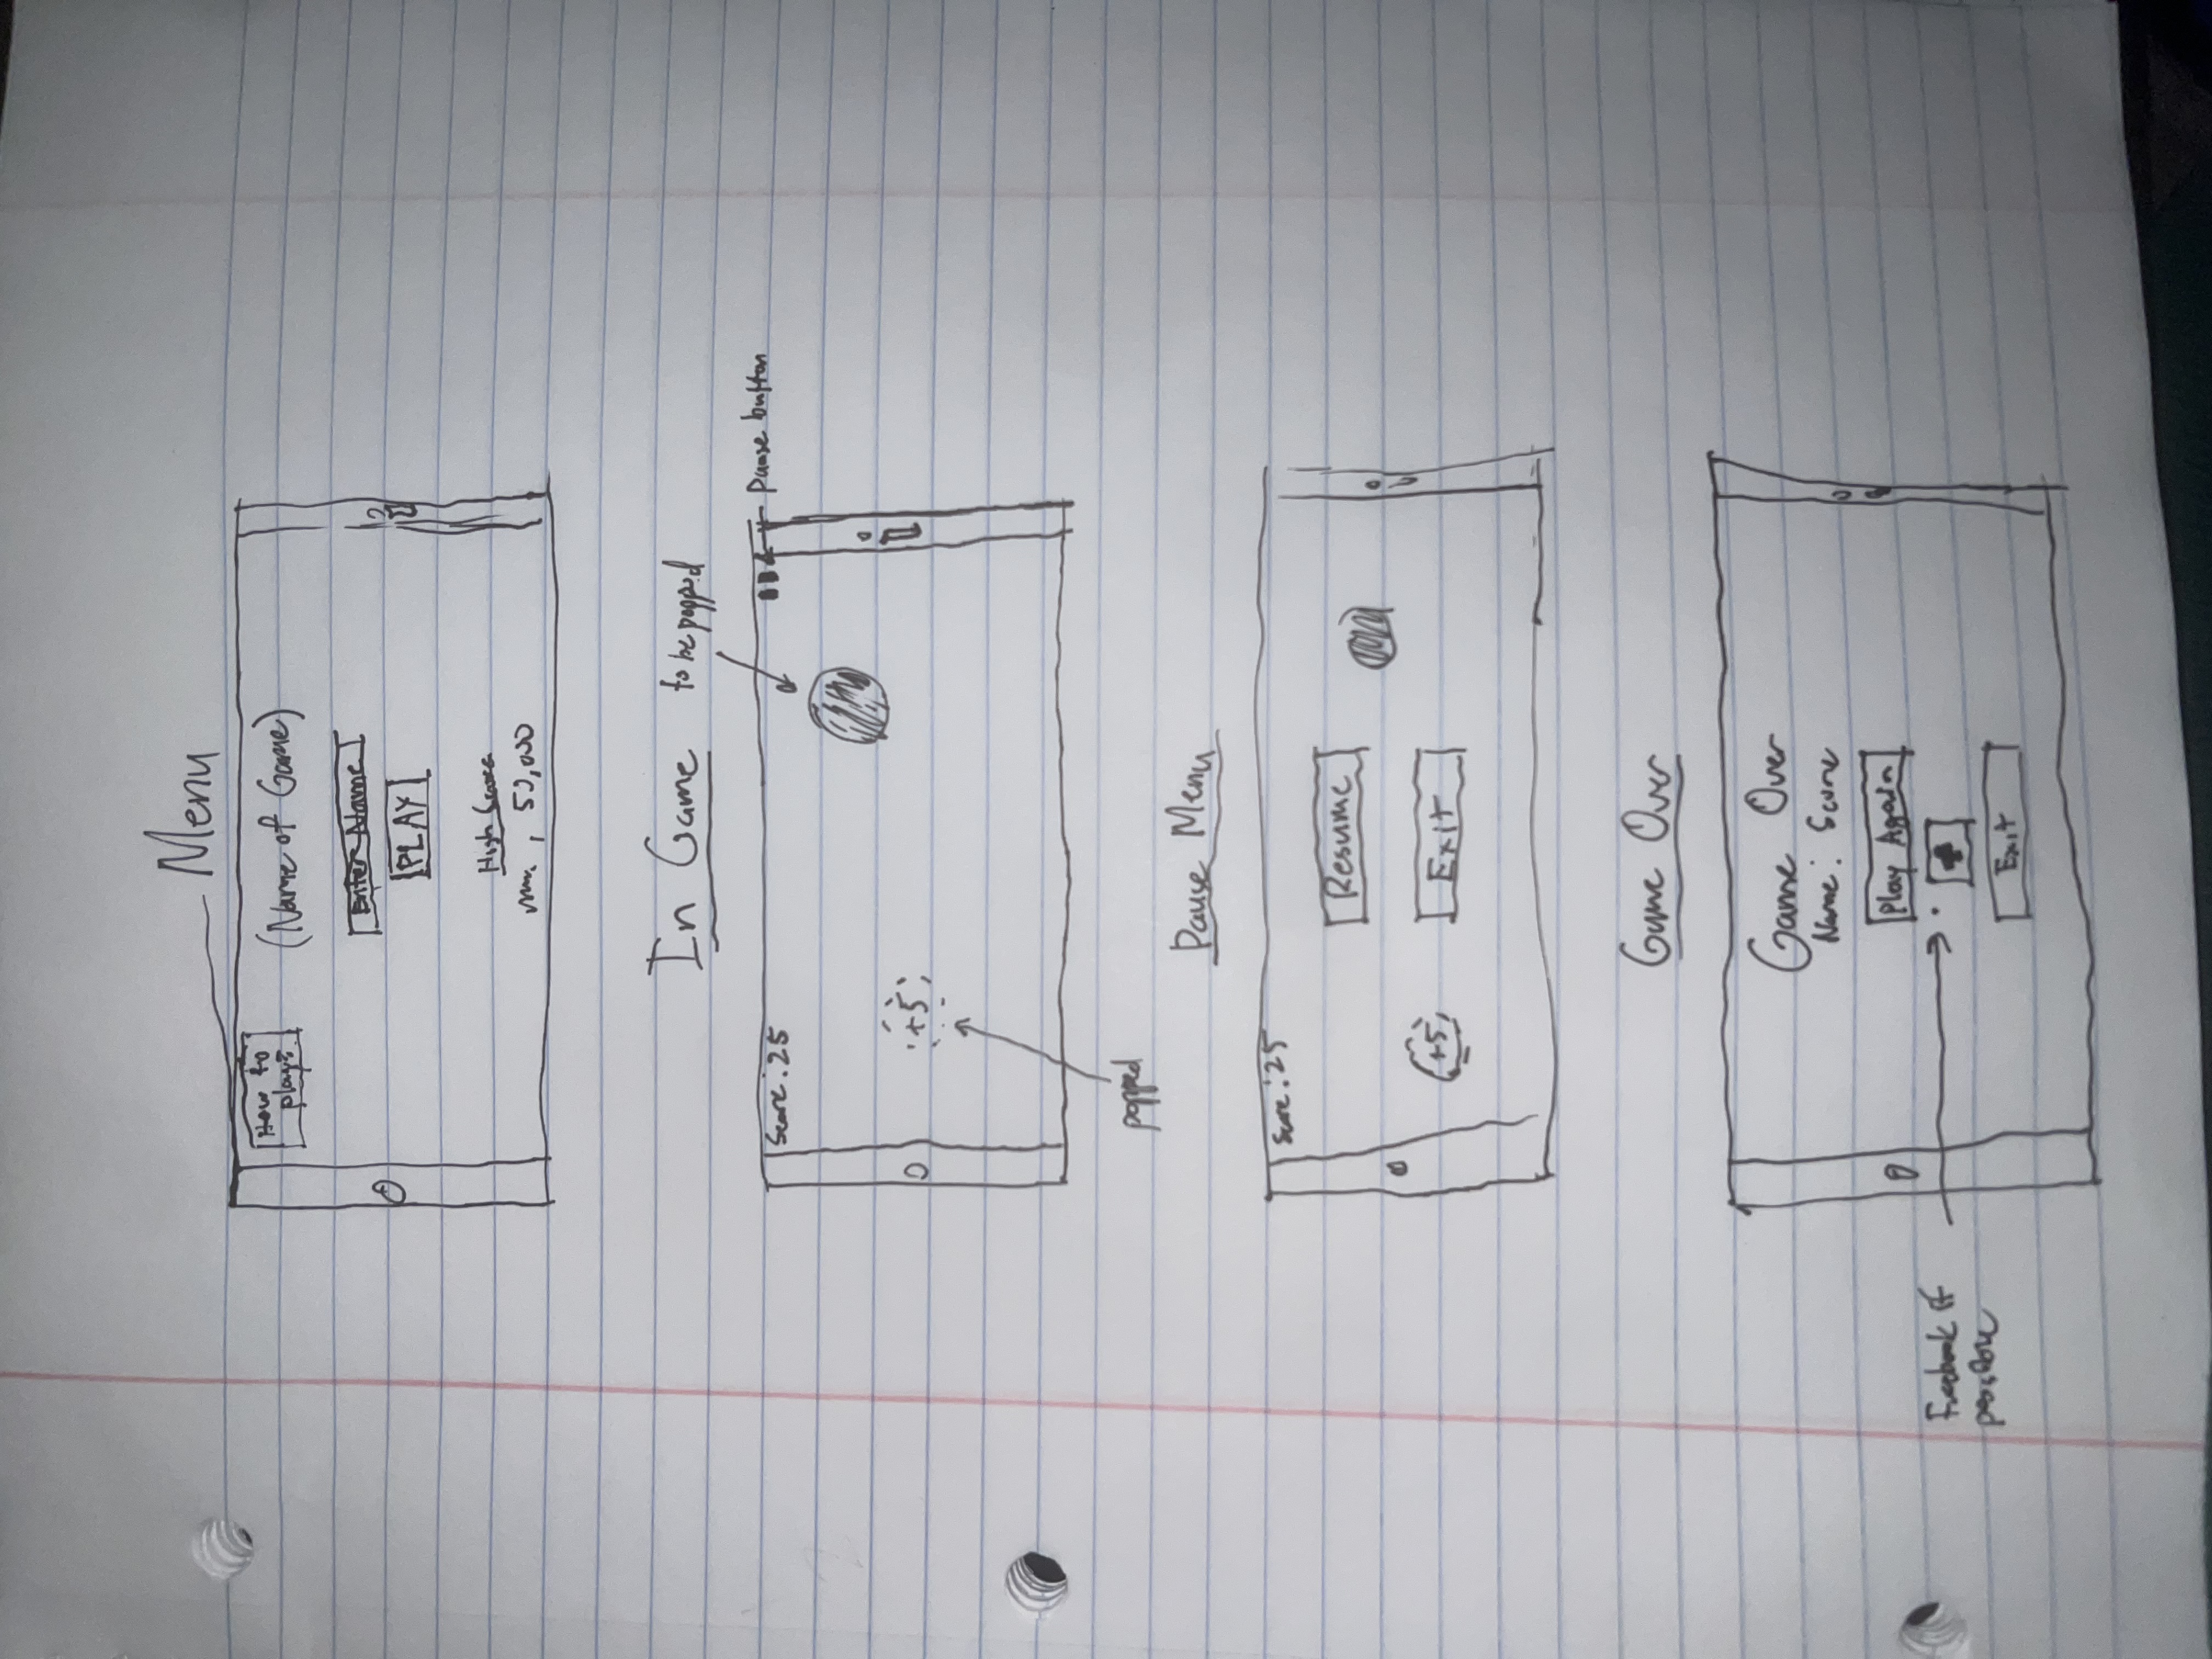 Menu
How to
play?
(Name of Game)
Enter Name
PLAY
High Scores
, 50,000
In Game
to be popped
Pause button
Score:25
+5
popped
Pause Menu
Score:25
Resume
+5
Exit
Game Over
Game Over
Name: Score
Play Again
Facebook if
possible
Exit